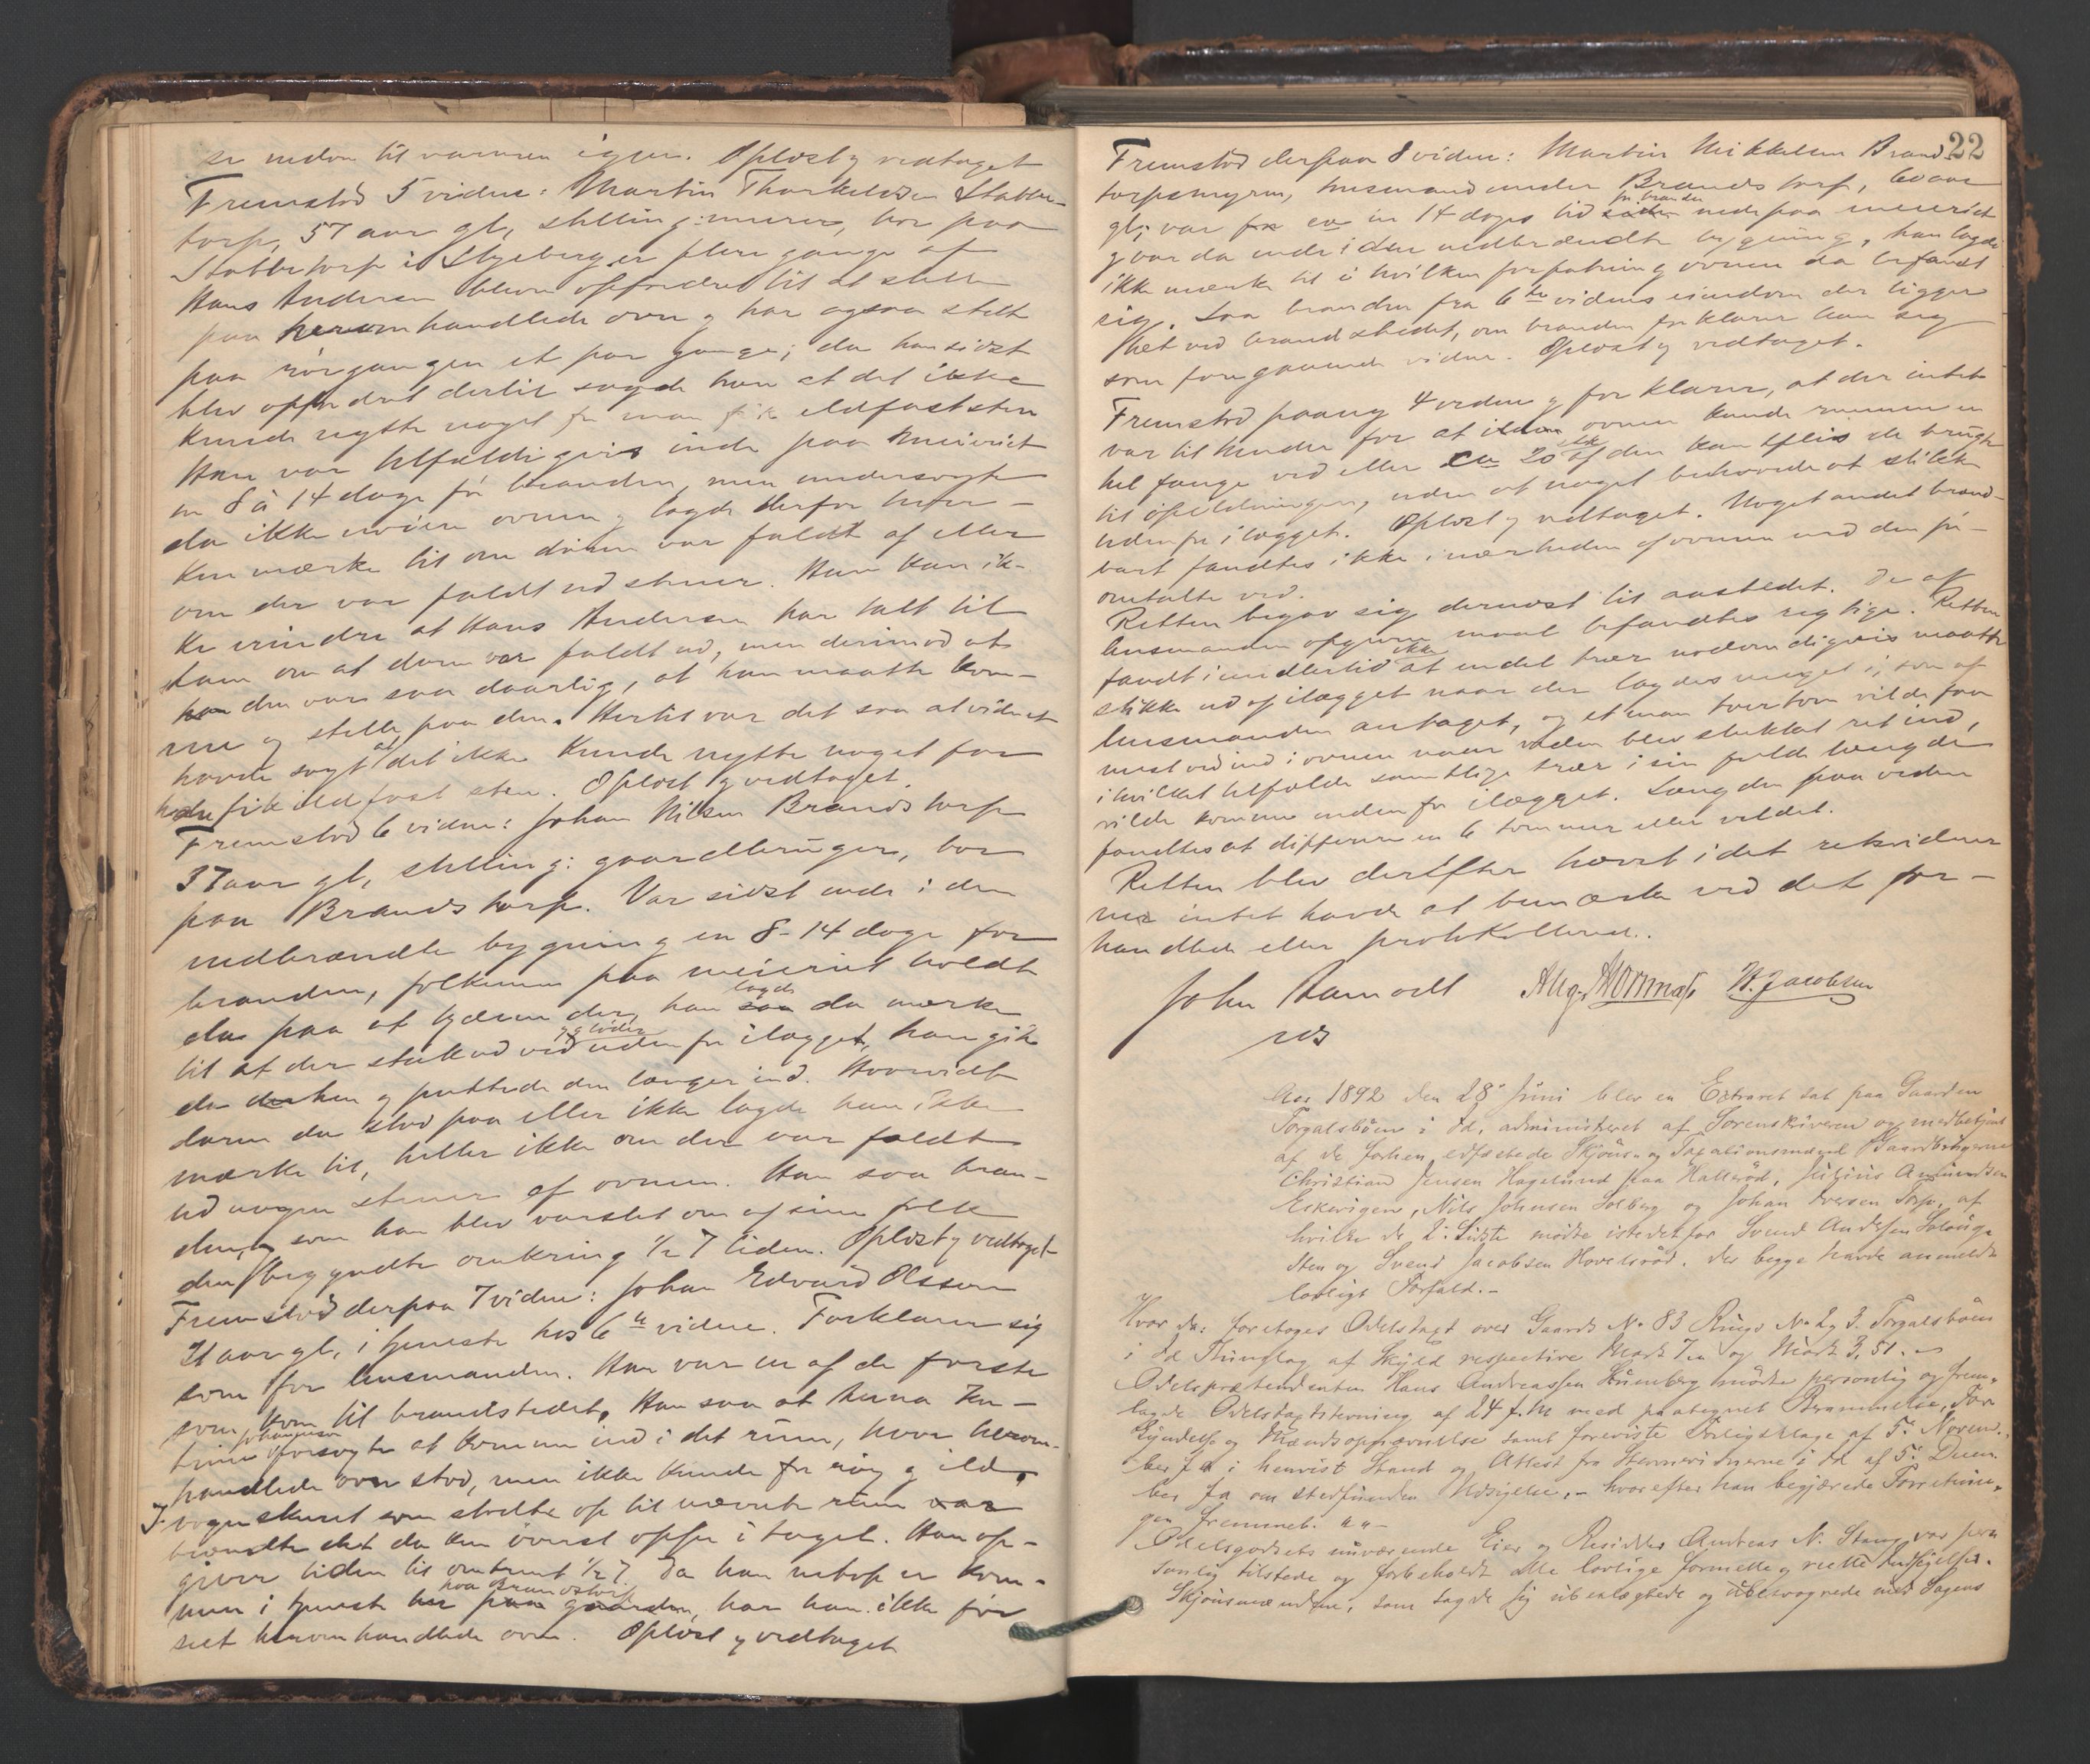 se veden til varmen igjen. Oplæst og vedtaget
Fremstod 5 vidne: Martin Thorkelsen Stabbe-
torp, 57 aar gl, stilling: murer, bor paa
Stabbetorp i Skjeberg, er flere gange af
Hans Andersen bleven opfordret til at stelle
paa heromhandlede ovn og har ogsaa stelt
paa rörgangen et par gange; da han sidst
blev opfordret dertil sagde han at det ikke
kunde nytte noget før man fik ildfaststen
Han var tilfældigvis inde paa meieriet
en 8 à 14 dage før branden, men undersøgte
da ikke nøiere ovnen og lagde derfor heller
ikke mærke til om døren var faldt af eller
om der var faldt ud stener. Han kan ik-
ke erindre at Hans Andersen har talt til
ham om at døren var faldt ud, men derimod at
den var saa daarlig, at han maatte kom-
me og stelle paa den. Hertil var det saa at vidnet
havde sagt at det ikke kunde nytte noget før
han fik ildfast sten. Oplæst og vedtaget.
Fremstod 6 vidne: Johan Nilsen Brandstorp
37 aar gl, stilling: gaardbruger, bor
paa Brandstorp. Var sidst inde i den
nedbrændte bygning en 8-14 dage før
branden, folkene paa meieriet holdt
da paa at kjærne der, han saa lagde da mærke
til at der stak ud ved og gløder uden for ilægget, han gik
da derhen og puttede den længer ind. Hvorvidt
døren da stod paa eller ikke lagde han ikke
mærke til, heller ikke om der var faldt
ud nogen stener af ovnen. Han saa bran-
den, som han blev varslet om af sine folk
den begyndte omkring ½ 7 tiden. Oplæst og vedtaget
Fremstod derpaa 7 vidne: Johan Edvard Olssen
21 aar gl, i tjeneste hos 6te vidne. Forklarer sig
som for lensmanden. Han var en af de første
som kom til brandstedet. Han saa at Anna Ka-
trine Johannesen forsøgte at komme ind i det rum, hvor herom-
handlede ovn stod, men ikke kunde for røg og ild.
I vognskuret som stødte op til nævnte rum var
brændte det da kun øverst oppe i taget. Han op-
giver tiden til omtrent ½ 7. Da han netop er kom-
men i tjeneste her paa gaarden paa Brandstorp, har han ikke før
seet heromhandlede ovn. Oplæst og vedtaget
22
Fremstod derpaa 8 vidne: Martin Mikkelsen Brand-
torpsmyren, husmand under Brandstorp, 60 aar
gl; var for ca en 14 dages tid siden før branden nede paa meieriet
og var da inde i den nedbrændte bygning, han lagde
ikke mærke til i hvilken forfatning ovnen da befandt
sig. Saa branden fra 6te vidnes eiendom der ligger
tæt ved brandstedet, om branden forklarer han sig
som foregaaende vidne. Oplæst og vedtaget.
Fremstod paany 4 vidne og forklarer, at der intet
var til hinder for at ovnen kunde rumme en
hel fange ved eller ca 20 stk af den kapflis de brugte
til opildningen, uden at noget behøvede at stikke
udenfor ilægget. Oplæst og vedtaget. Noget andet brænd-
bart fandtes ikke i nærheden af ovnen end den før-
omtalte ved.
Retten begav sig dernæst til aastedet. De af
lensmanden opgivne maal befandtes rigtige. Retten
fandt imidlertid ikke at endel trær nødvendigvis maatte
stikke ud af ilægget naar der lagdes meget i, som af
lensmanden antaget, og at man tvertom vilde faa
mest ved ind i ovnen naar veden blev stukket ret ind,
i hvilket tilfælde samtlige trær i sin fulde længde
vilde komme indenfor ilægget. Længden paa veden
fandtes at differere en 6 tommer eller veldet.
Retten blev derefter hævet idet rekvirenten
intet havde at bemærke ved det for-
handlede eller protokollerede.
John Ramvell Aug. Thormas H. Jacobsen
Aar 1892 den 28de Juni blev en Extraret sat paa Gaarden
Torgalsbøen i Id, administreret af Sorenskriveren og medbetjent
af de forhen edfæstede Skjøns- og Taxationsmænd Gaardbrugerne
Christian Jensen Hagelund paa Hallerød, Julius Amundsen
Eskevigen, Nils Johnsen Solberg og Johan Iversen Torp, af
hvilke de 2de Sidste mødte istedetfor Svend Andersen
Sten og Svend Jacobsen Hovelsrød, der begge havde anmeldt
lovligt Forfald.-
Hvor da: foretoges Odelstaxt over Gaards No 83 Brugs No 2 og 3 Torgalsbøen
i Id Thinglag af Skyld respective Mark 7 og Mark 3,51.-
Odelsprætendenten Hans Andreassen mødte personlig og frem-
lagde Odelstaxtstevning af 24 f.M. med paategnet Berammelse, For-
kyndelse og Mændsopnævnelse samt foreviste Forligsklage af 5te Novem-
ber f.A. i henvist Stand og Attest fra Stevnevidnerne i Id af 5te Decem-
ber f.A. om stedfunden Udsigelse,- hvorefter han begjærede Forretnin-
gen fremmet.
Odelsgodsets nuværende Eier og Besidder Andreas N. Stang var per-
sonlig tilstede og forbeholdt alle lovlige formelle og reelle Indsigelser.
Skjønsmændene, som sagde sig ubeslægtede og ubesvogrede med Sagens